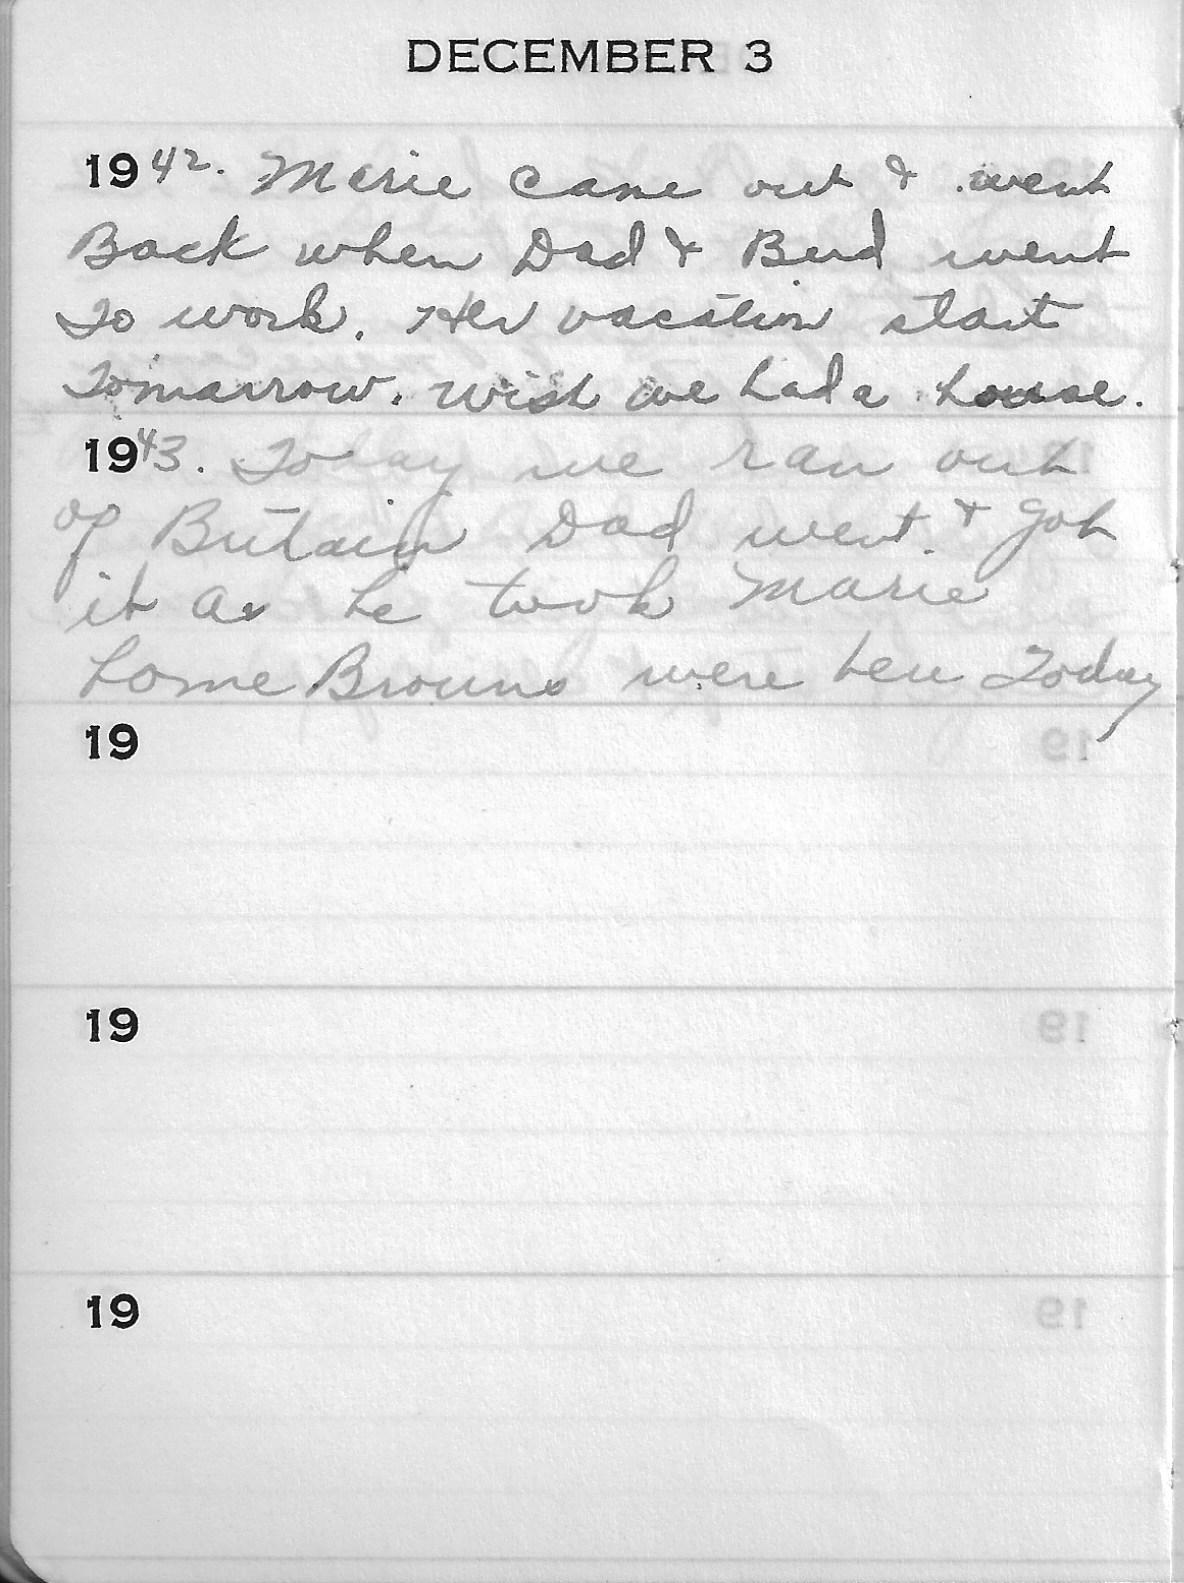 DECEMBER 3
1942. Marie came out & went
Back when Dad & Burd went
To work. Her vacation start
Tomarrow. Wish we had a house.
1943. Today we ran out
of Butain Dad went. & got
it as he took Marie
home Browns were here Today
19
19
19